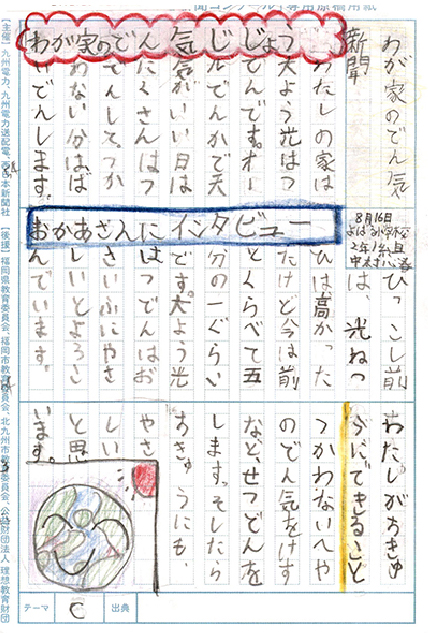 聞コンクール」専用原稿用紙
わが家のでん気
新聞
8月16日
小学校
2年1組
わが家のでん気じじょう
わたしの家は
太よう光はつ
でんです。オー
ルでんかで天
気がいい日は
たくさんはつ
でんして、つか
わない分はば
いでんします。
おかあさんにインタビュー
ひっこし前
は、光ねつ
ひは高かった
けど今は前
とくらべて五
分の一ぐらい
です。太よう光
はつでんはお
さいふにやさ
しいとよろこ
んでいます。
わたしがちきゅ
うにできること
つかわないへや
のでん気をけす
など、せつでんを
します。そしたら
ちきゅうにも、
やさ
しい
と思
います。
【主催】九州電力、九州電力送配電、西日本新聞社 【後援】福岡県教育委員会、福岡市教育委員会、北九州市教育委員会、公益財団法人 理想教育財団
テーマ C 出典